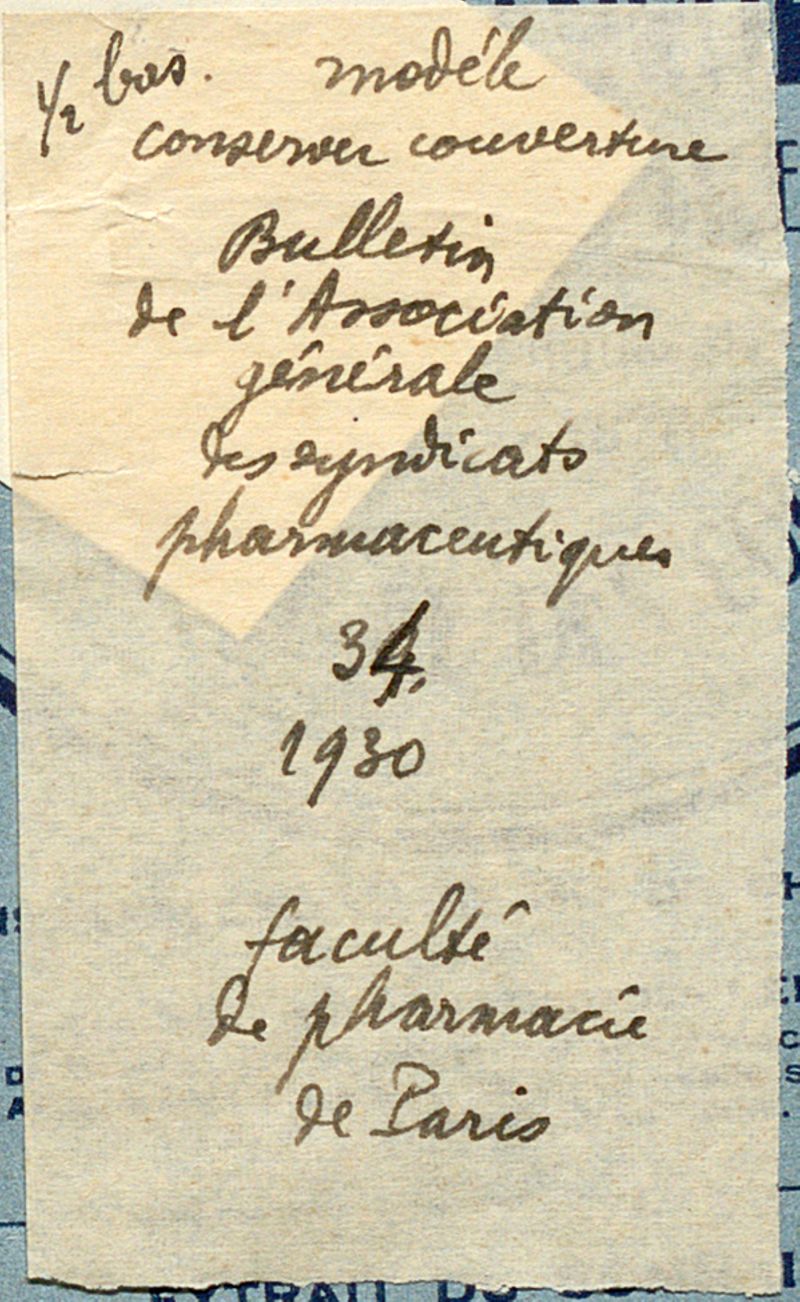 1/2 bas. modèle
conserver couverture
Bulletin
de l'Association
générale
des syndicats
pharmaceutiques
34
1930
faculté
de pharmacie
de Paris
EXTRAIT DU